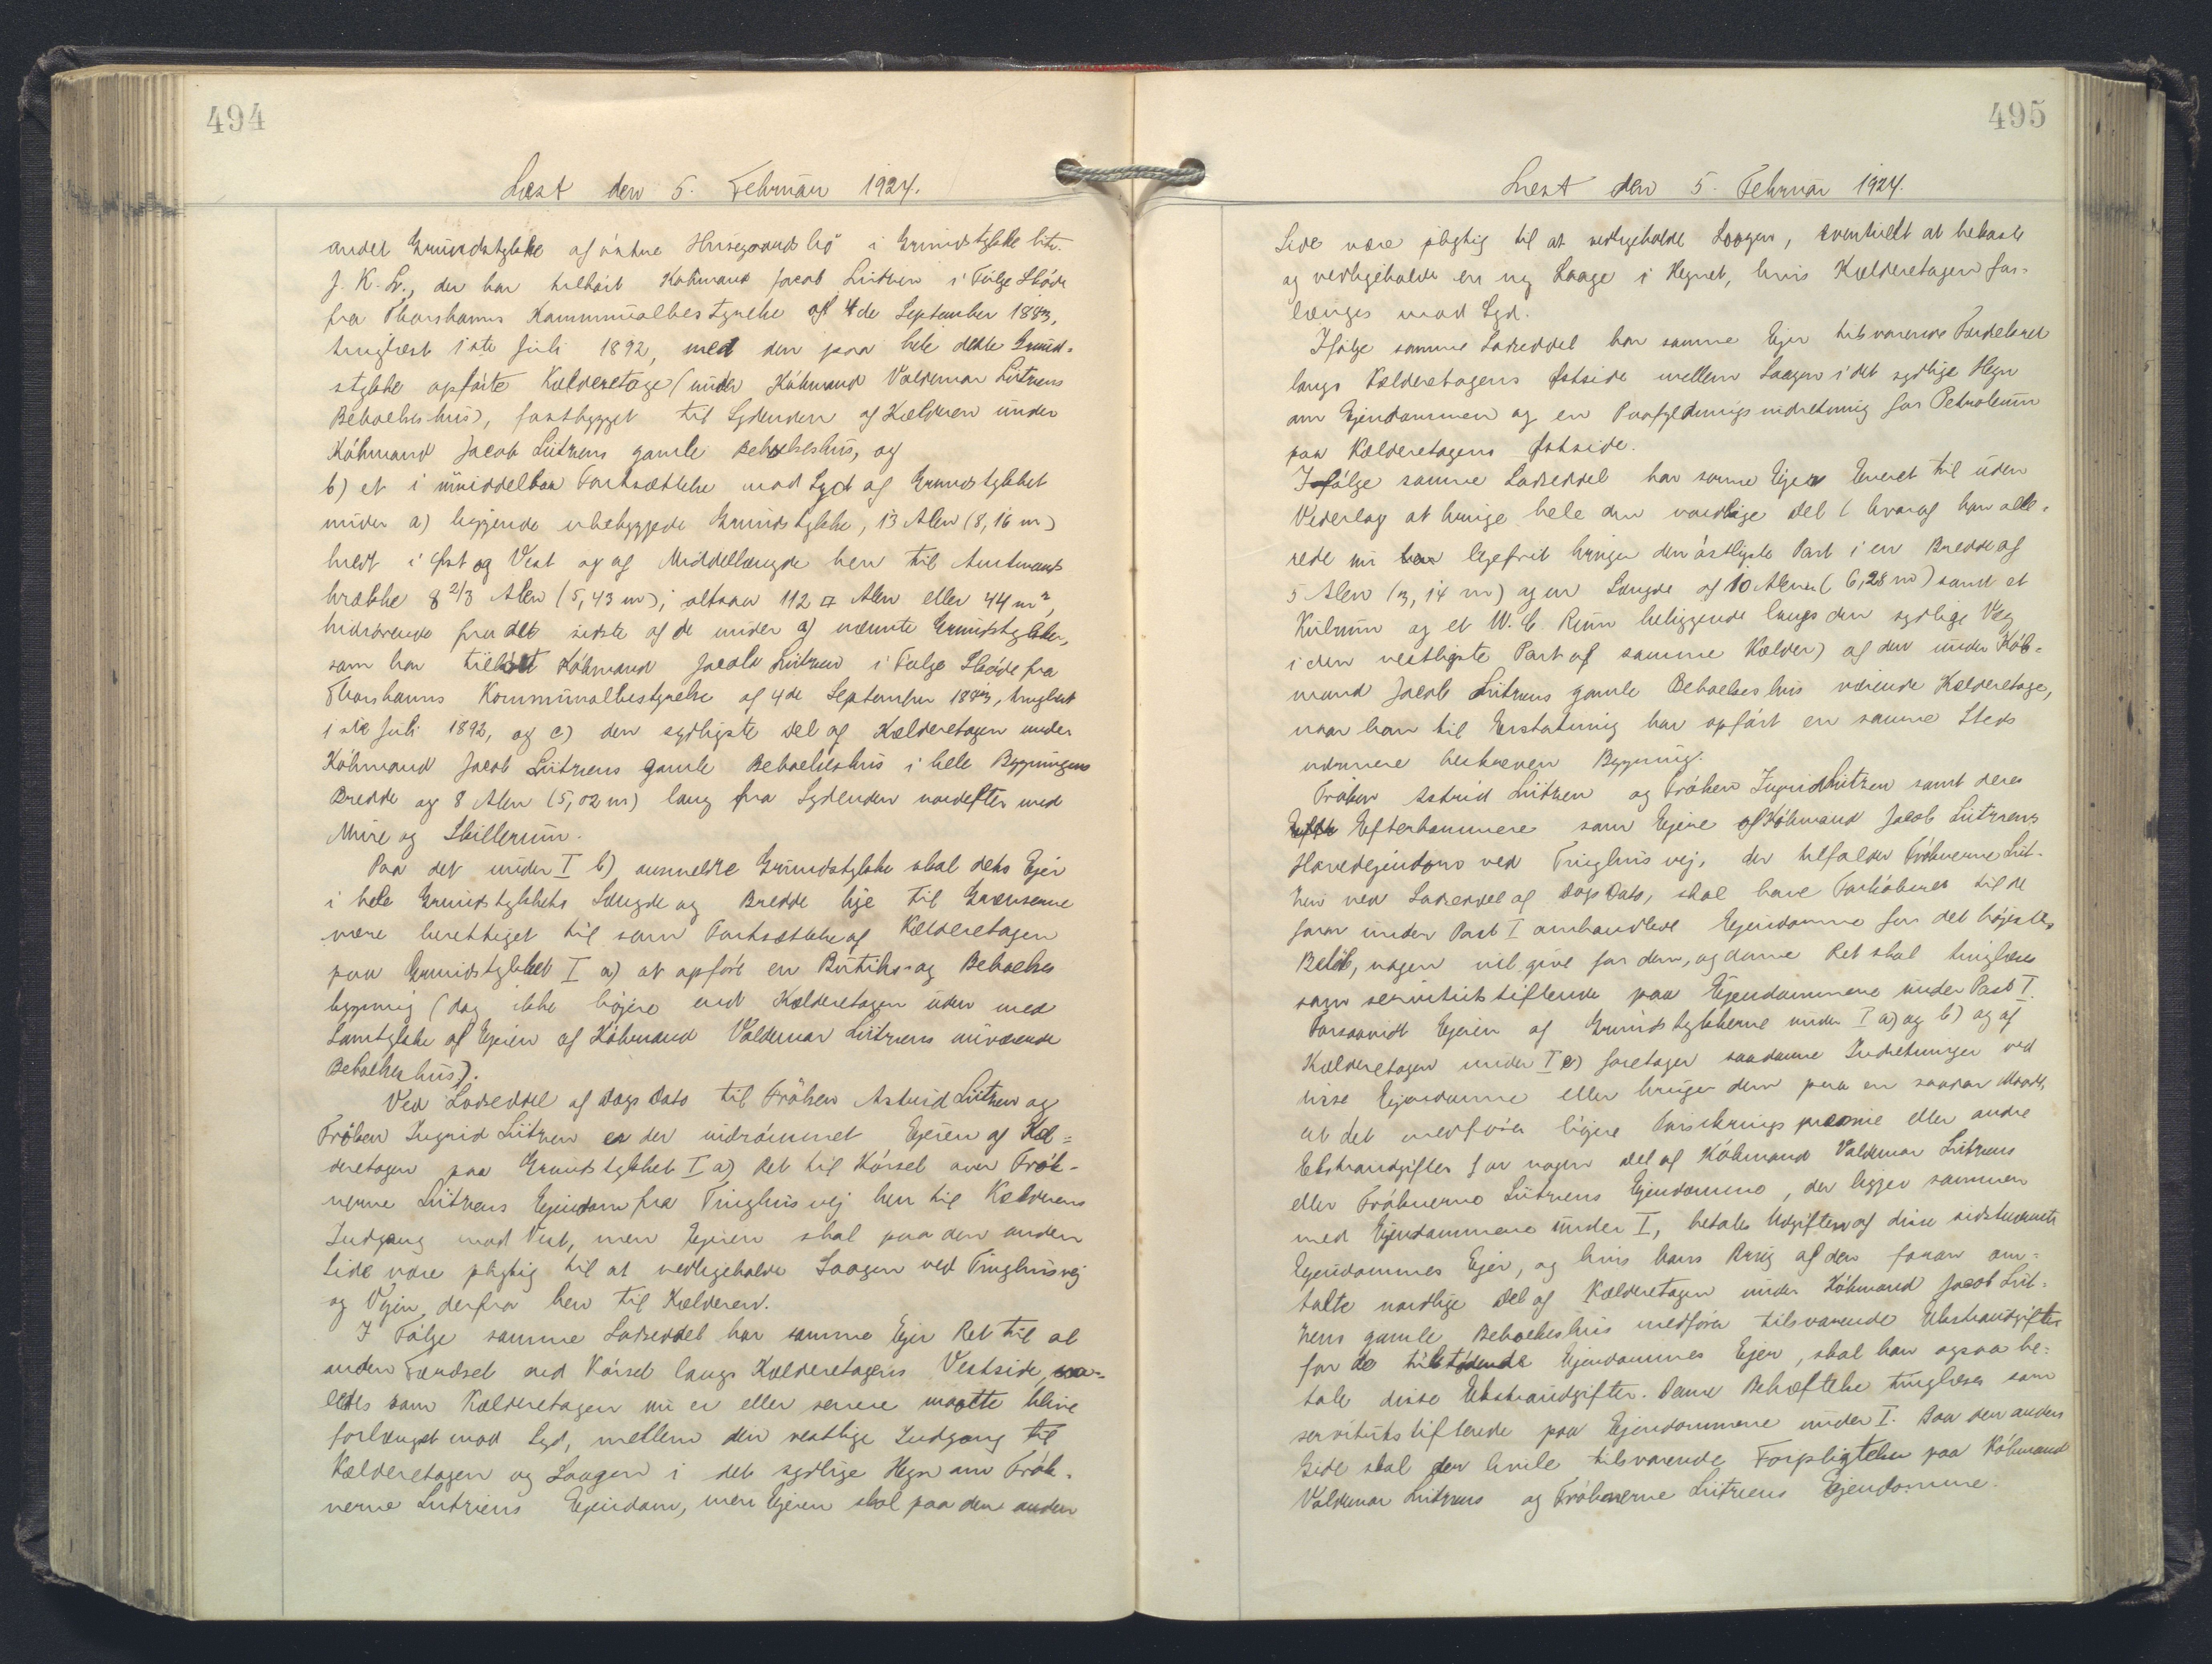 494
Læst den 5. Februar 1924.
andet Grundstykke af östre Husegaards bö i Grundstykke litr.
J. K. Lr., der har tilhört Köbmand Jacob Lützen i Fölge Sköde
fra Thorshavns Kommunalbestyrelse af 4de September 1883,
tinglæst 1ste Juli 1892, med den paa hele dette Grund-
stykke opförte Kælderetage (under Köbmand Valdemar Lützens
Beboelseshus), fastbygget til Sydenden af Kælderen under
Köbmand Jacob Lützens gamle Beboelseshus, og
b) et i umiddelbar Fortsættelse mod Syd af Grundstykket
under a) liggende ubebyggede Grundstykke, 13 Alen (8,16 m)
bredt i Öst og Vest og af Middellængde hen til Amtmands
brække 8 2/3 Alen (5,43 m); altsaa 112 □ Alen eller 44 m²,
hidrörende fra det sidste af de under a) nævnte Grundstykker,
som har tilhört Köbmand Jacob Lützen i Fölge Sköde fra
Thorshavns Kommunalbestyrelse af 4de September 1883, tinglæst
1ste Juli 1892, og c) den sydligste Del af Kælderetagen under
Köbmand Jacob Lützens gamle Beboelseshus i hele Bygningens
Bredde og 8 Alen (5,02 m) lang fra Sydenden nordefter med
Mure og Skillerum.
Paa det under I b) anmeldte Grundstykke skal dets Ejer
i hele Grundstykkets Længde og Bredde lige til Grænserne
være berettiget til som Fortsættelse af Kælderetagen
paa Grundstykket I a) at opföre en Butiks- og Beboelses
bygning (dog ikke höjere end Kælderetagen uden med
Samtykke af Ejeren af Köbmand Valdemar Lützens nuværende
Beboelseshus).
Ved Ladseddel af Dags Dato til Fröken Astrid Lützen og
Fröken Ingrid Lützen er der indrömmet Ejeren af Kæl=
deretagen paa Grundstykket I a) Ret til Körsel over Frök-
nerne Lützens Ejendom fra Tinghusvej hen til Kælderens
Indgang mod Vest, men Ejeren skal paa den anden
Side være pligtig til at vedligeholde Laagen ved Tinghusvej
og Vejen derfra hen til Kælderen.
I Fölge samme Ladseddel har samme Ejer Ret til al
anden Færdsel end Körsel langs Kælderetagens Vestside, saa-
ledes som Kælderetagen nu er eller senere maatte blive
forlænget mod Syd, mellem den vestlige Indgang til
Kælderetagen og Laagen i det sydlige Hegn om Frök-
nerne Lützens Ejendom, men Ejeren skal paa den anden
495
Læst den 5. Februar 1924.
Side være pligtig til at vedligeholde Laagen, eventuelt at bekoste
og vedligeholde en ny Laage i Hegnet, hvis Kælderetagen for-
længes mod Syd.
Ifölge samme Ladseddel har samme Ejer tilsvarende Færdselsret
langs Kælderetagens Østside mellem Laagen i det sydlige Hegn
om Ejendommen og en Paafyldningsindretning for Petroleum
paa Kælderetagens Østside.
Ifölge samme Ladseddel har samme Ejer Eneret til uden
Vederlag at bruge hele den nordlige Del (hvoraf han alle-
rede nu lejefrit bruger den östligste Part i en Bredde af
5 Alen (3,14 m) og en Længde af 10 Alen (6,28 m) samt et
Kulrum og et W. C. Rum beliggende langs den sydlige Væg
i den vestligste Part af samme Kælder) af den under Köb-
mand Jacob Lützens gamle Beboelseshus værende Kælderetage,
naar han til Erstatning har opfört en samme Steds
nærmere beskreven Bygning.
Fröken Astrid Lützen og Fröken Ingrid Lützen samt deres
Efterkommere som Ejere af Köbmand Jacob Lützens
Hovedejendom ved Tinghusvej, der tilfalder Fröknerne Lüt-
zen ved Ladseddel af Dags Dato, skal have Forköbsret til de
foran under Post I omhandlede Ejendomme for det höjeste
Belöb, nogen vil give for dem, og denne Ret skal tinglæses
som servitutstiftende paa Ejendommene under Post I.
Forsaavidt Ejeren af Grundstykkerne under I a) og b) og af
Kælderetagen under I c) foretager saadanne Indretninger ved
disse Ejendomme eller bruger dem paa en saadan Maade,
at det medförer höjere Forsikringspræmie eller andre
Ekstraudgifter for nogen Del af Köbmand Valdemar Lützens
eller Fröknerne Lützens Ejendomme, der ligger sammen
med Ejendommene under I, betales Udgiften af disse sidstnævnte
Ejendommes Ejer, og hvis hans Brug af den foran om-
talte nordlige Del af Kælderetagen under Köbmand Jacob Lüt-
zens gamle Beboelseshus medförer tilsvarende Ekstraudgifter
for de tilstödende Ejendommes Ejer, skal han ogsaa be-
tale disse Ekstraudgifter. Denne Bekræftelse tinglæses som
servitutstiftende paa Ejendommene under I. Paa den anden
Side skal der hvile tilsvarende Forpligtelse paa Köbmand
Valdemar Lützens og Fröknerne Lützens Ejendomme.